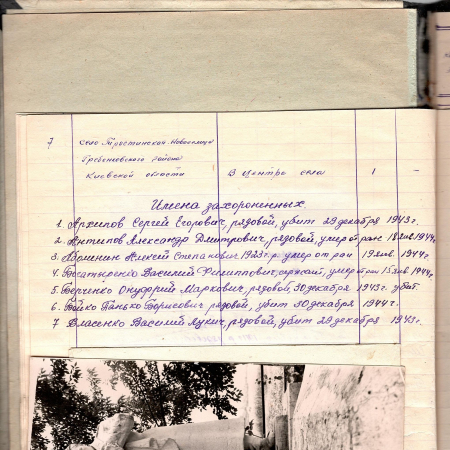 7 село Тростинская-Новоселица
Гребенковского района
Киевской области В центре села 1 -
Имена захороненных.
1. Архипов Сергей Егорович, рядовой, убит 29 декабря 1943 г.
2. Антипов Александр Дмитрович, рядовой, умер от ран 18 янв 1944 г.
3. Алексей Степанович 1923 г.р. умер от ран 19 янв. 1944 г.
4. Василий Филиппович, сержант, умер от ран 15 янв. 1944 г.
5. Онуфрий Маркович, рядовой, 30 декабря 1943 г. убит.
6. Бойко Панько Борисович рядовой, убит 30 декабря 1944 г.
7 Власенко Василий Лукич, рядовой, убит 29 декабря 1943 г.